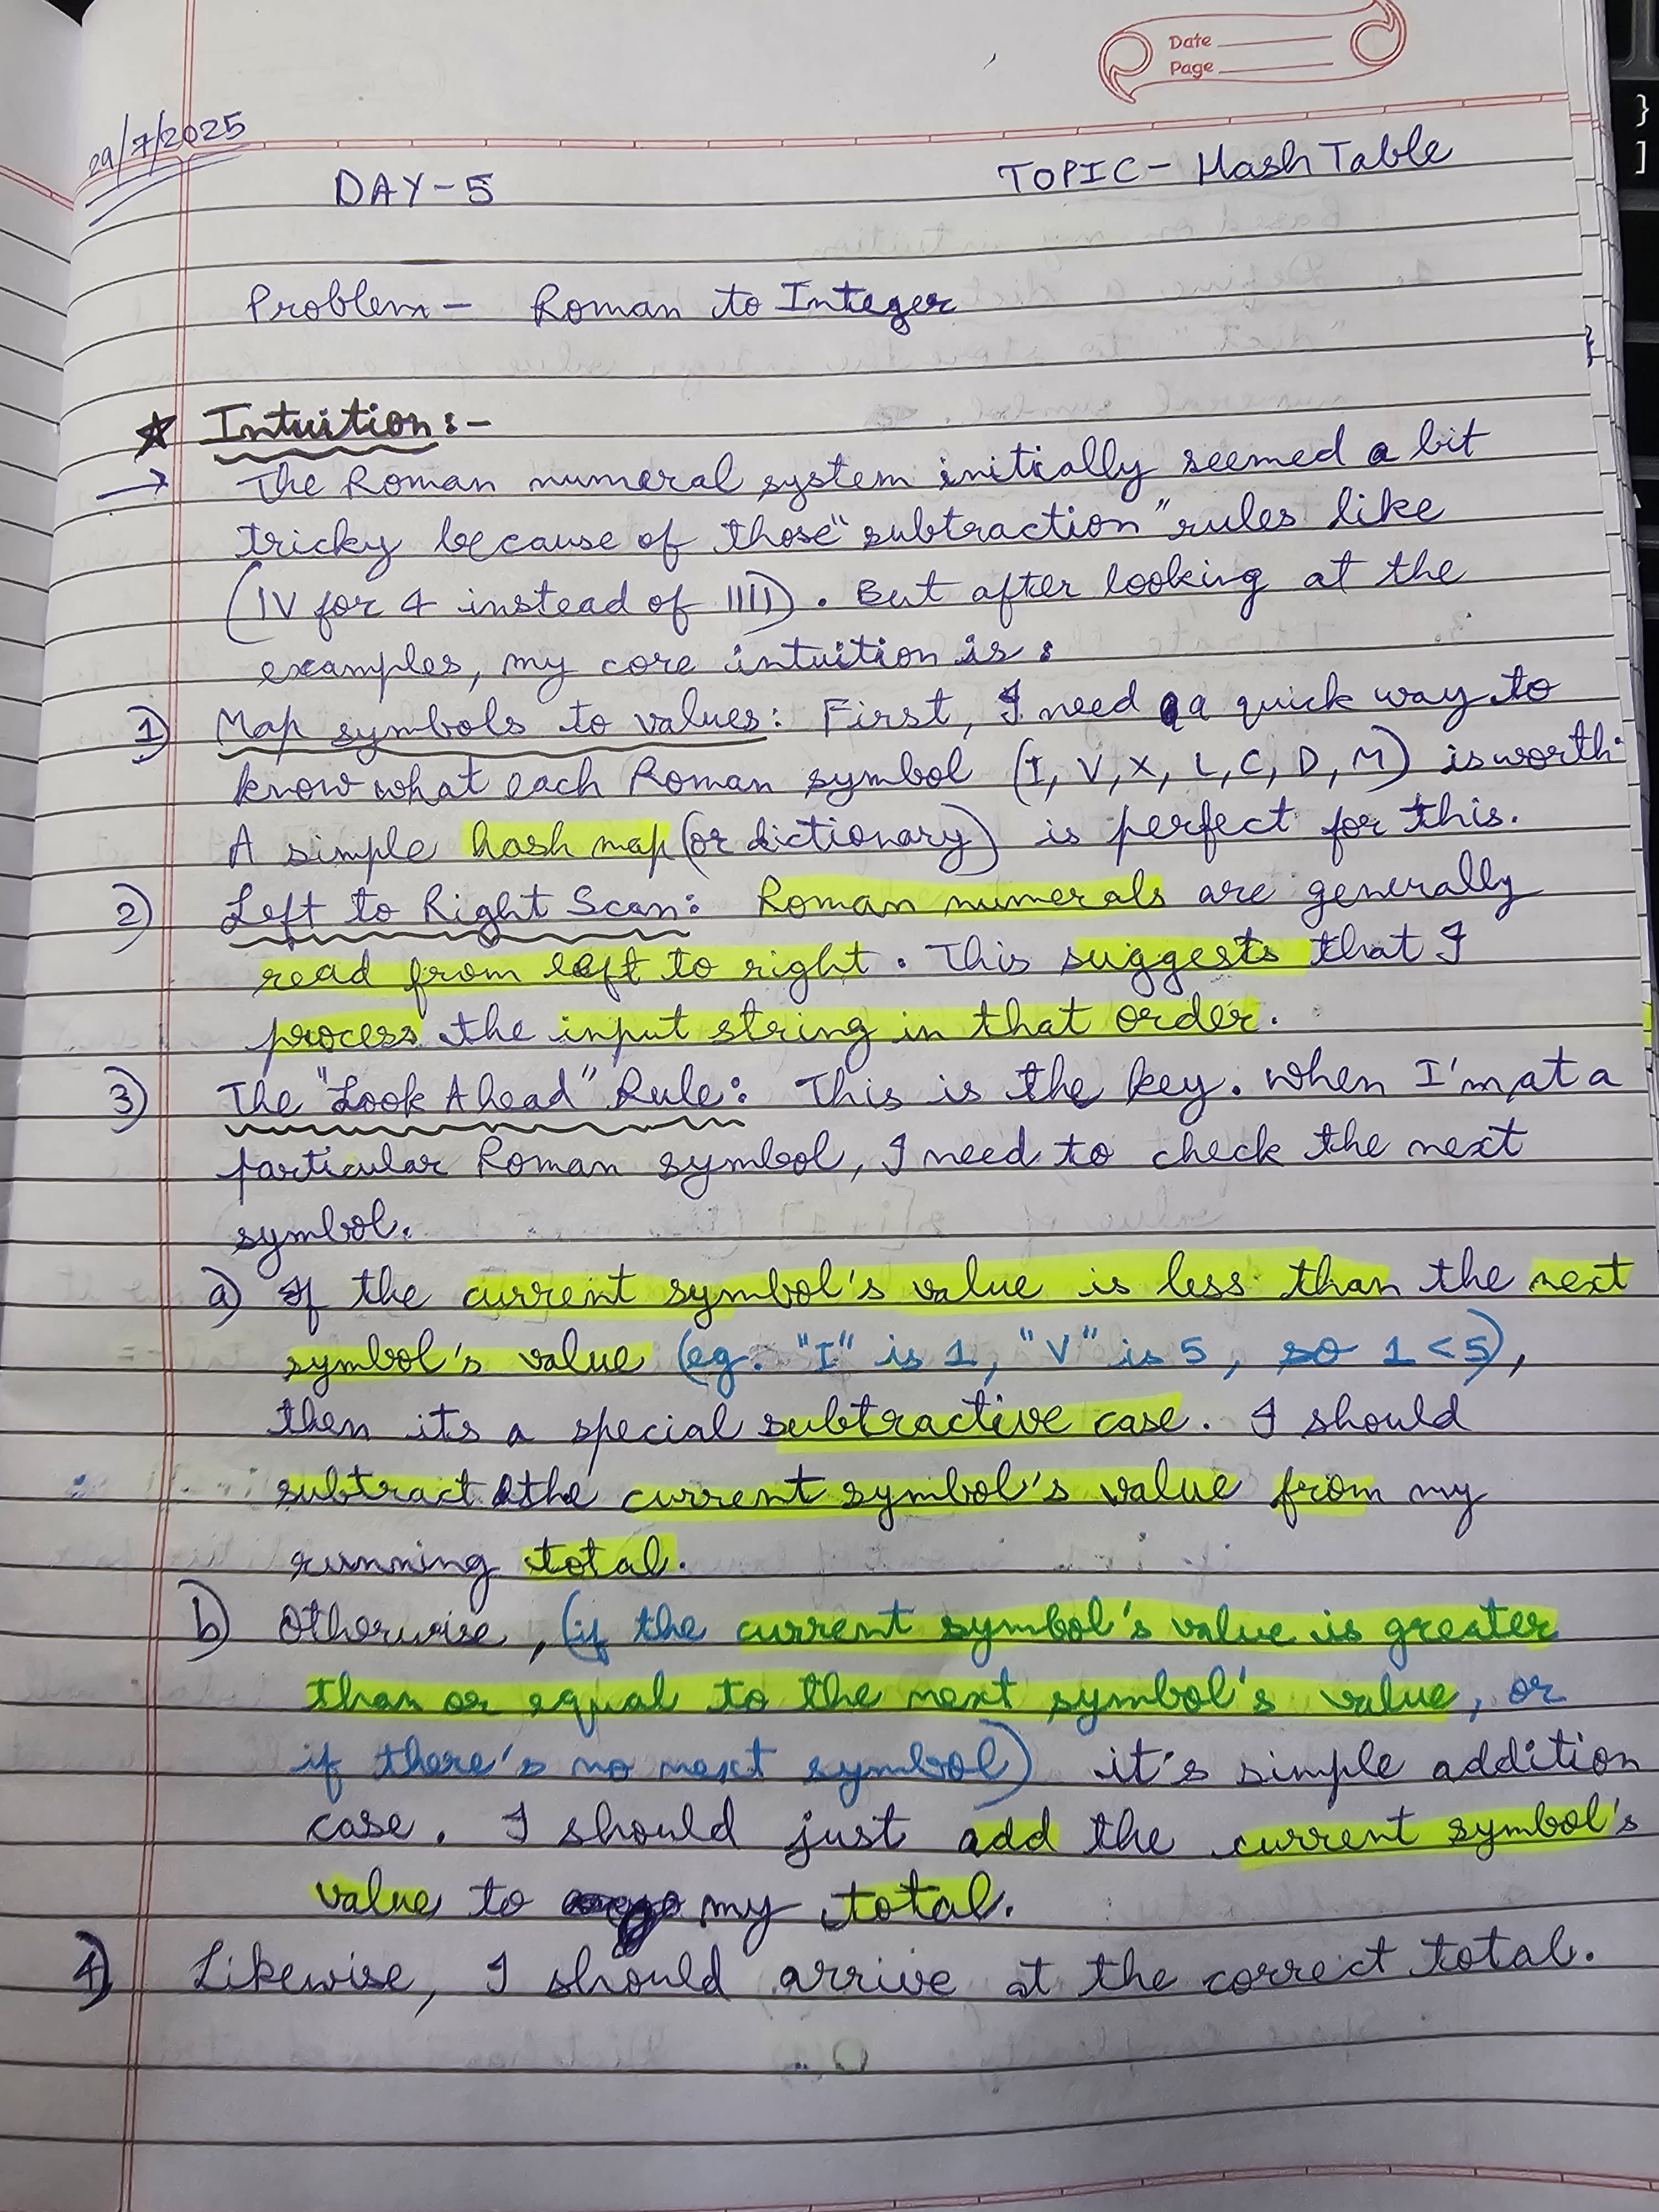 Date
Page
29/7/2025
DAY-5 TOPIC- Hash Table
Problem- Roman to Integer
☆ Intuition:-
→ The Roman numeral system initially seemed a bit
tricky because of those "subtraction" rules like
(IV for 4 instead of IIII). But after looking at the
examples, my core intuition is:
1) Map symbols to values: First, I need a quick way to
know what each Roman symbol (I, V, X, L, C, D, M) is worth.
A simple hash map (or dictionary) is perfect for this.
2) Left to Right Scan: Roman numerals are generally
read from left to right. This suggests that I
process the input string in that order.
3) The "Look Ahead" Rule: This is the key. When I'm at a
particular Roman symbol, I need to check the next
symbol.
a) If the current symbol's value is less than the next
symbol's value (eg. "I" is 1, "V" is 5, so 1 < 5),
then its a special subtractive case. I should
subtract the current symbol's value from my
running total.
b) Otherwise, (if the current symbol's value is greater
than or equal to the next symbol's value, or
if there's no next symbol) it's simple addition
case. I should just add the current symbol's
value to my total.
4) Likewise, I should arrive at the correct total.
}
]